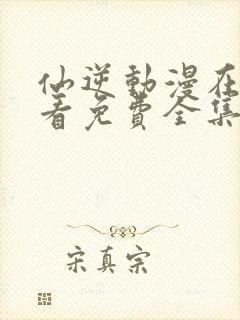 仙逆動漫在
看免費全集
宋真宗